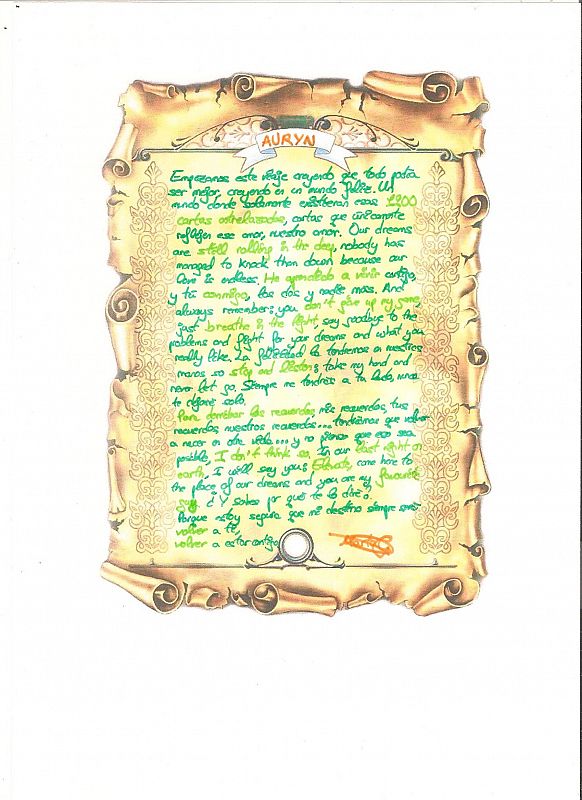 AURYN
Empezamos este viaje creyendo que todo podía
ser mejor, creyendo en un mundo feliz. Un
mundo donde solamente existieran esas 1.200
cartas entrelazadas, cartas que únicamente
reflejen ese amor, nuestro amor. Our dreams
are still rolling in the deep, nobody has
managed to knock them down because our
love is endless. He aprendido a vivir contigo,
y tú conmigo, los dos y nadie más. And
always remember: you don't give up my game,
just breathe in the light, say goodbye to the
problems and fight for your dreams and what you
really like. La felicidad la tendremos en nuestras
manos so stop and listen; take my hand and
never let go. Siempre me tendrás a tu lado, nunca
te dejaré solo.
Para derribar los recuerdos, mis recuerdos, tus
recuerdos, nuestros recuerdos... tendríamos que volver
a nacer en otra vida... y no pienso que eso sea
posible, I don't think so. In our last night on
earth, I will say you: Elevate, come here to
the place of our dreams and you are my favourite
guy. ¿Y sabes por qué te lo diré?
Porque estoy segura que mi destino siempre será
volver a ti,
volver a estar contigo.